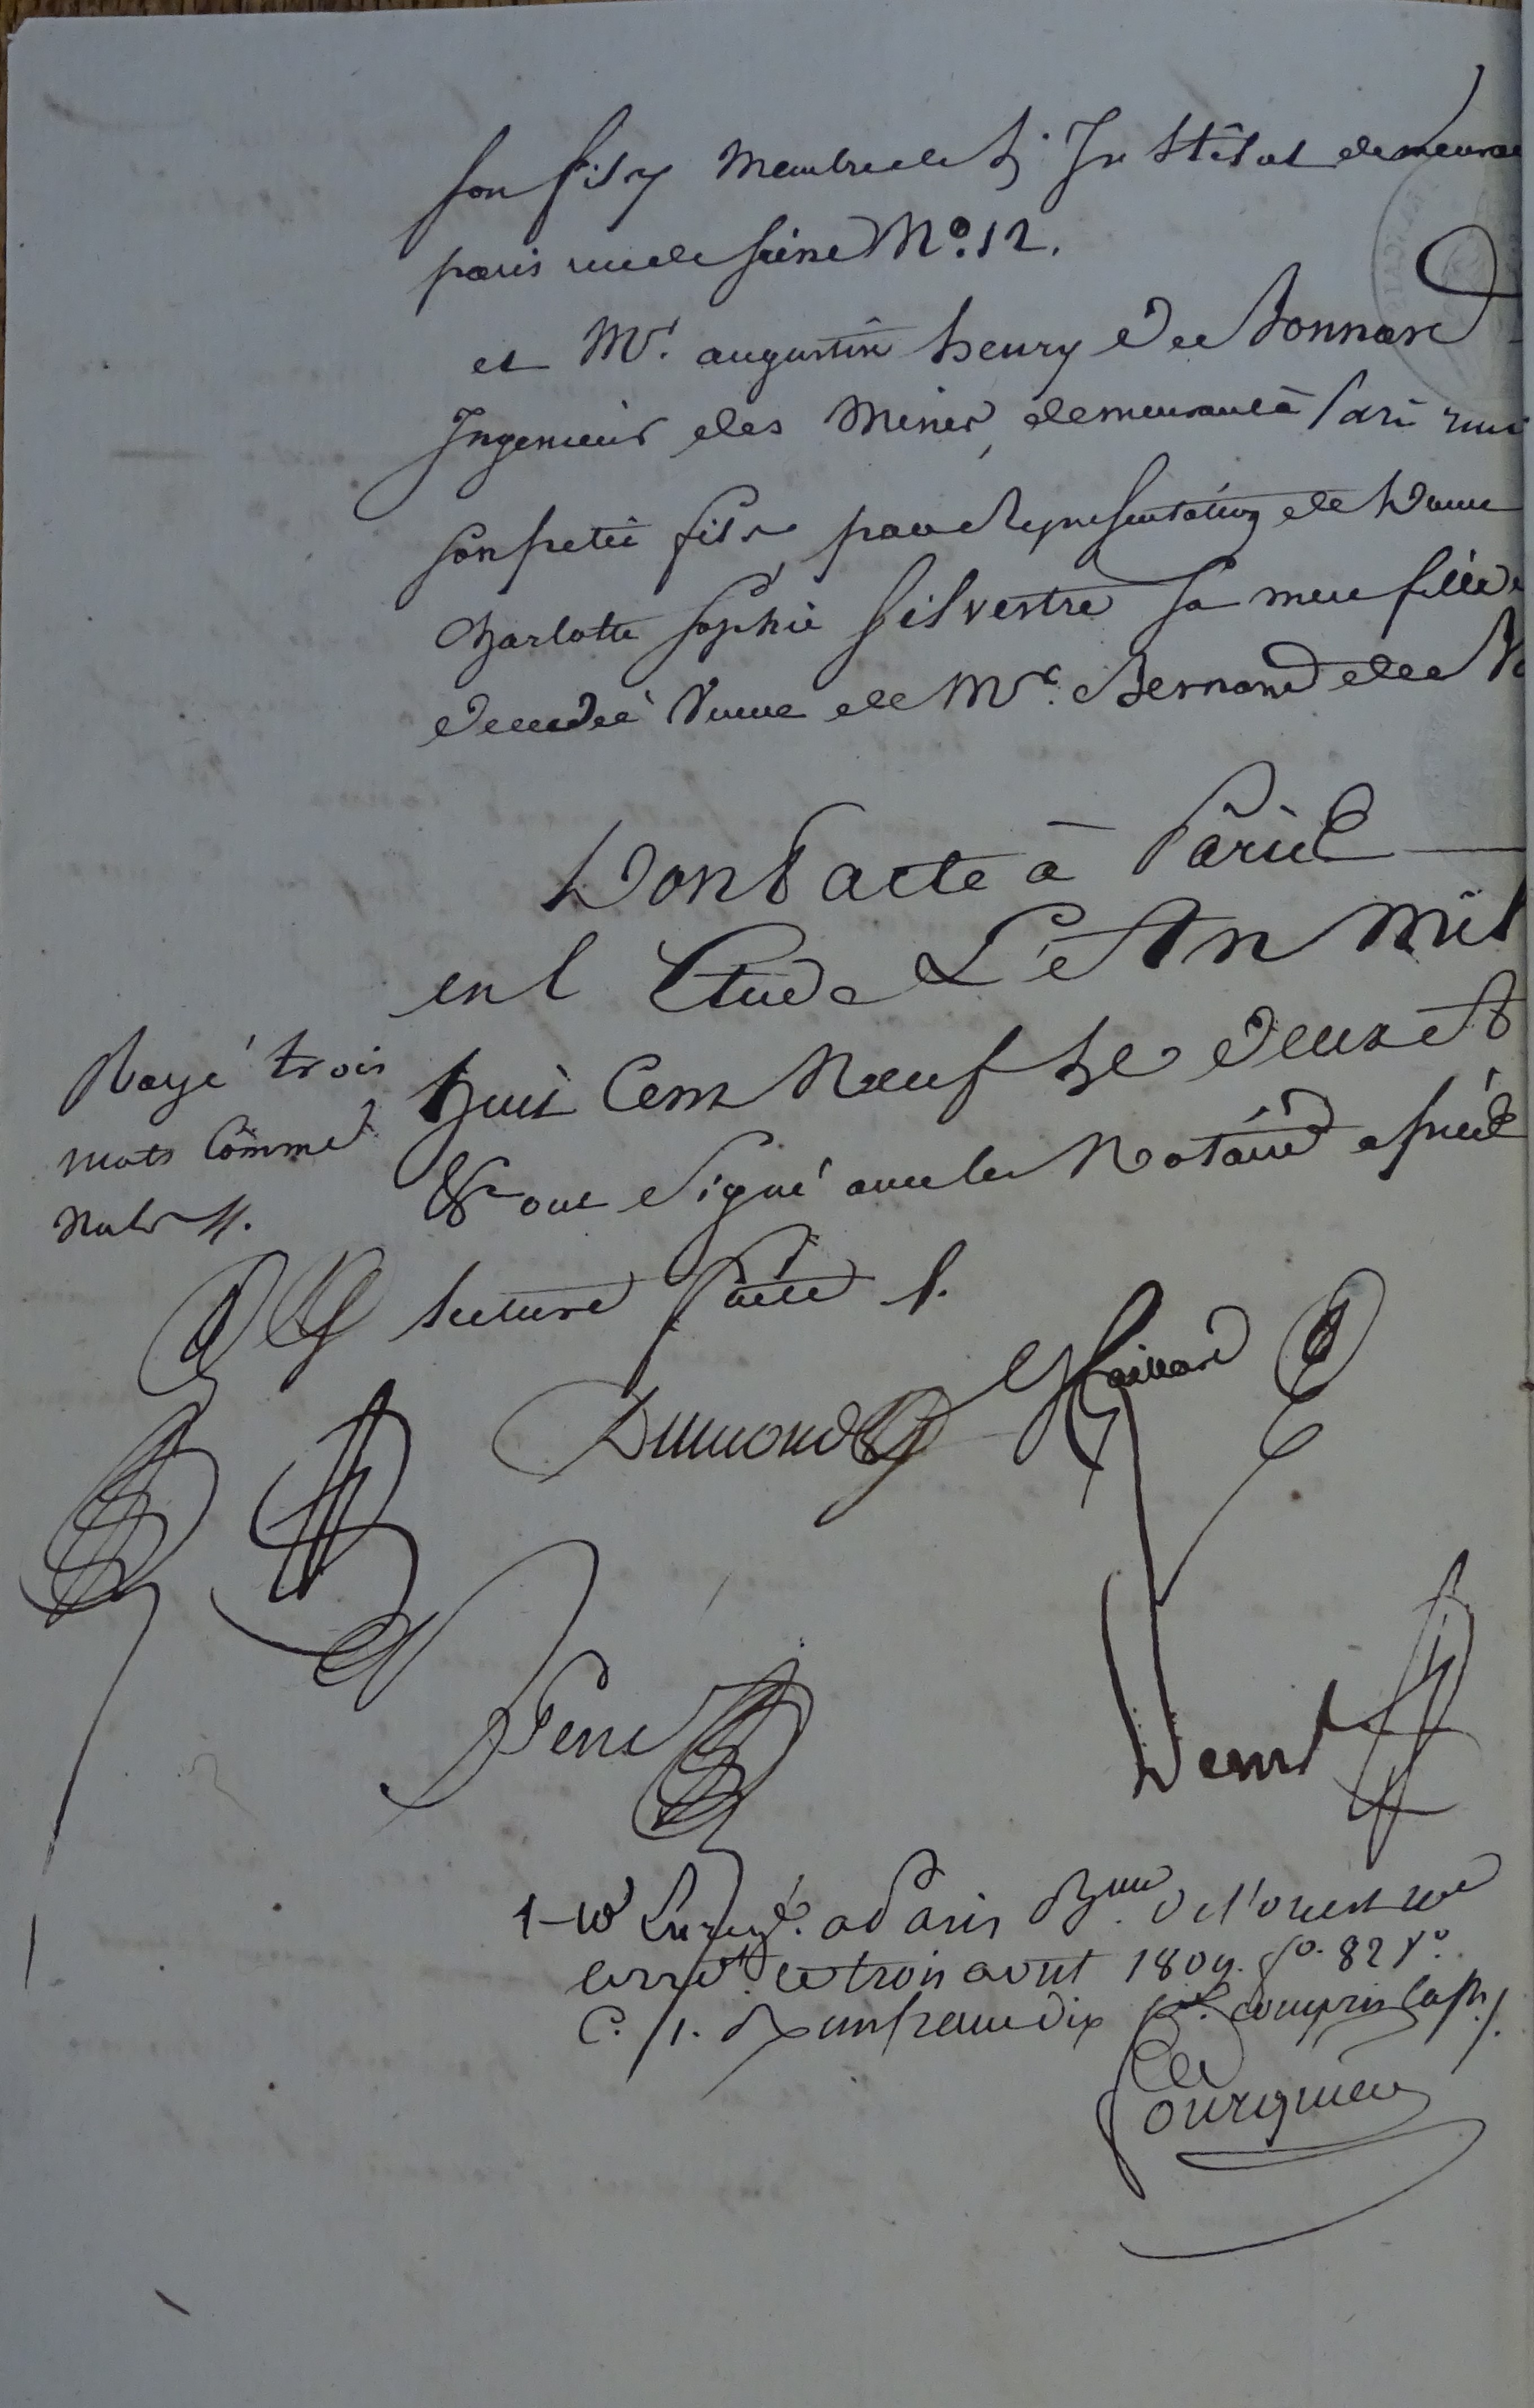 son fils, Membre de L'Institut demeurant
paris rue de Seine No. 12.
et Mr. augustin henry De Bonnard
Ingenieur des Mines, demeurant à Paris rue
son petit fils, par Representation de Dame
Charlotte Sophie Silvestre sa mere fille
decedée Veuve de Mr. Bernard de
Dont acte à Paris
en l'Etude L'An Mil
huit Cent Neuf Le deux Aout
& ont Signé avec les Notaires après
lecture faite /.
Rayé trois
mots Comme
Nuls //.
Dumond Gaillard
Denis
Enregé. a Paris Bau de
le trois aout 1809. fo. 82 Vo.
C. /1. Rx un franc dix cmes compris la Son /.